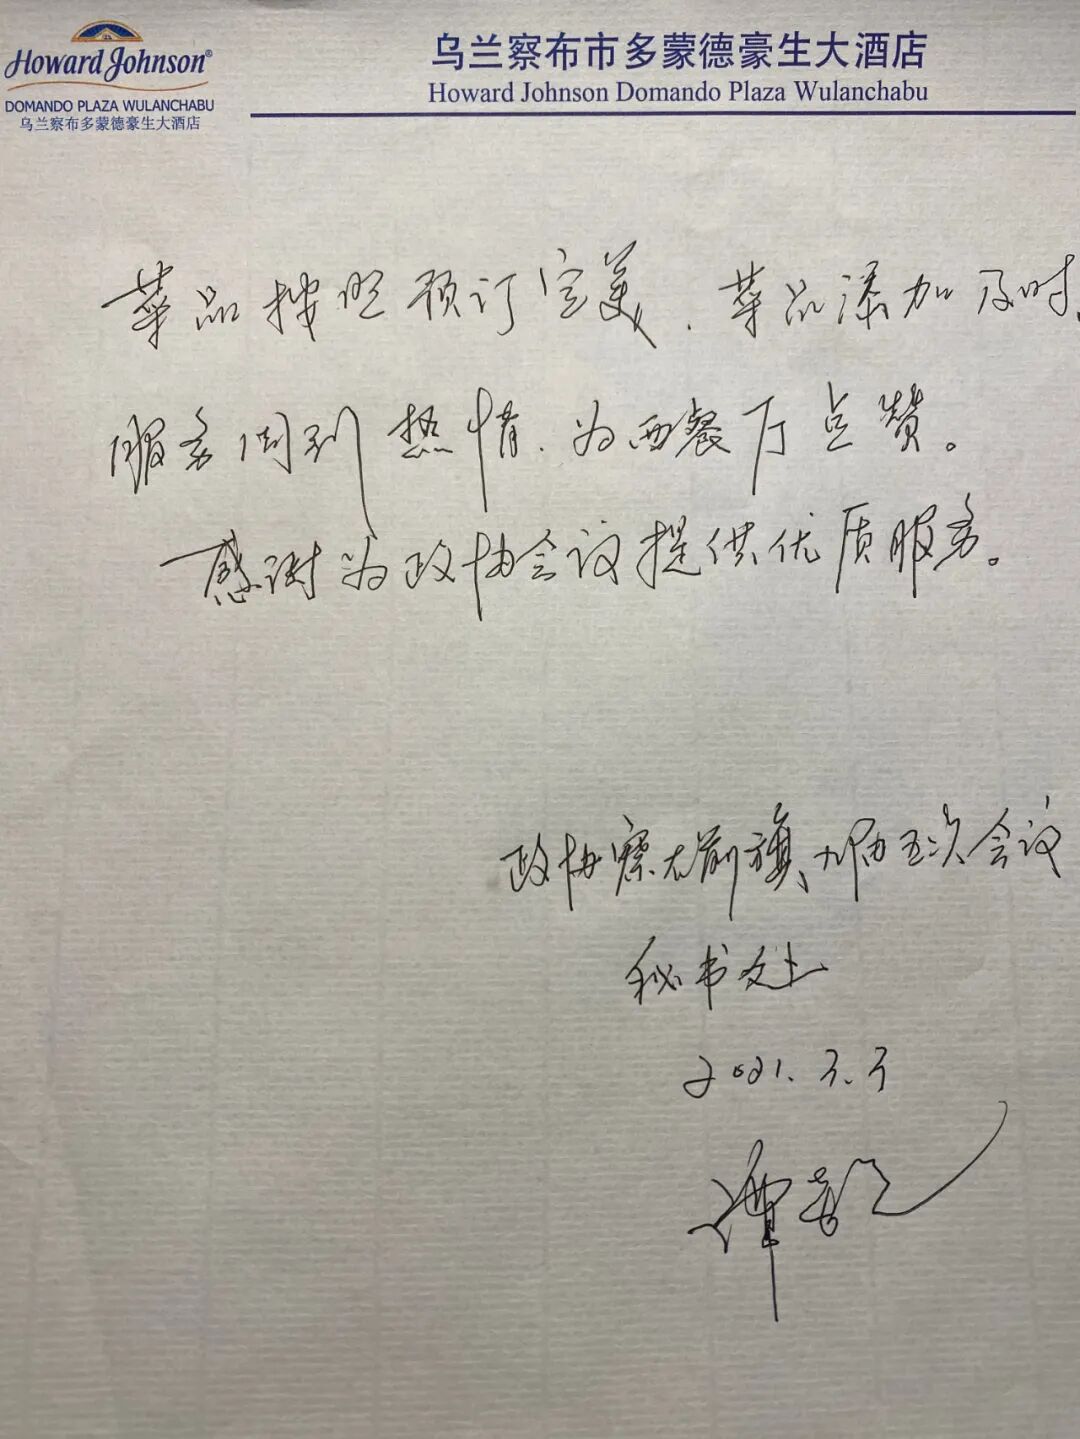 Howard Johnson®
DOMANDO PLAZA WULANCHABU
乌兰察布多蒙德豪生大酒店
乌兰察布市多蒙德豪生大酒店
Howard Johnson Domando Plaza Wulanchabu
菜品按照预订完美、菜品添加及时、
服务周到热情、为西餐厅点赞。
感谢为政协会议提供优质服务。
政协察右前旗九届五次会议
秘书处
2021.3.3
谭